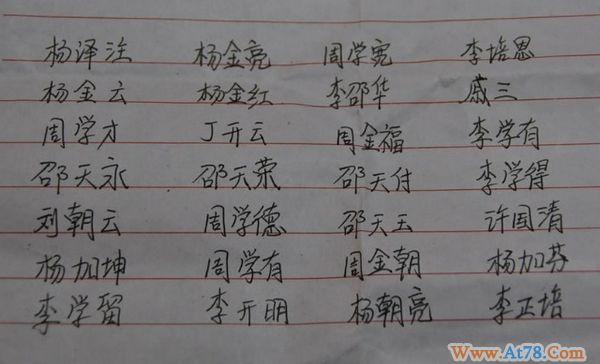 杨泽注 杨金亮 周学宽 李培恩
杨金云 杨金红 李邵华 戚三
周学才 丁开云 周金福 李学有
邵天永 邵天荣 邵天付 李学得
刘朝云 周学德 邵天玉 许国清
杨加坤 周学有 周金朝 杨加芬
李学留 李开明 杨朝亮 李正培
Www.At78.Com